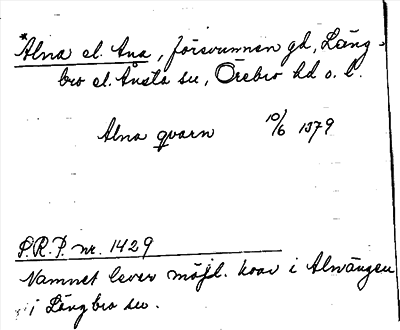 *Alna el. Ana, försvunnen gd, Läng-
bro el. Ånsta sn, Örebro hd o. l.
Alna qvarn 10/6 1379
S.R.P. nr. 1429
Namnet lever möjl. kvar i Alnängen
i Längbro sn.